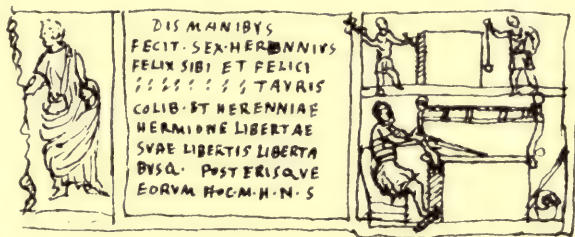 DIS MANIBVS
FECIT · SEX · HERENNIVS
FELIX SIBI ET FELICI
TAVRIS
COLIB · ET HERENNIAE
HERMIONE LIBERTAE
SVAE LIBERTIS LIBERTA
BVSQ · POSTERISQVE
EORVM H · C · M · H · N · S